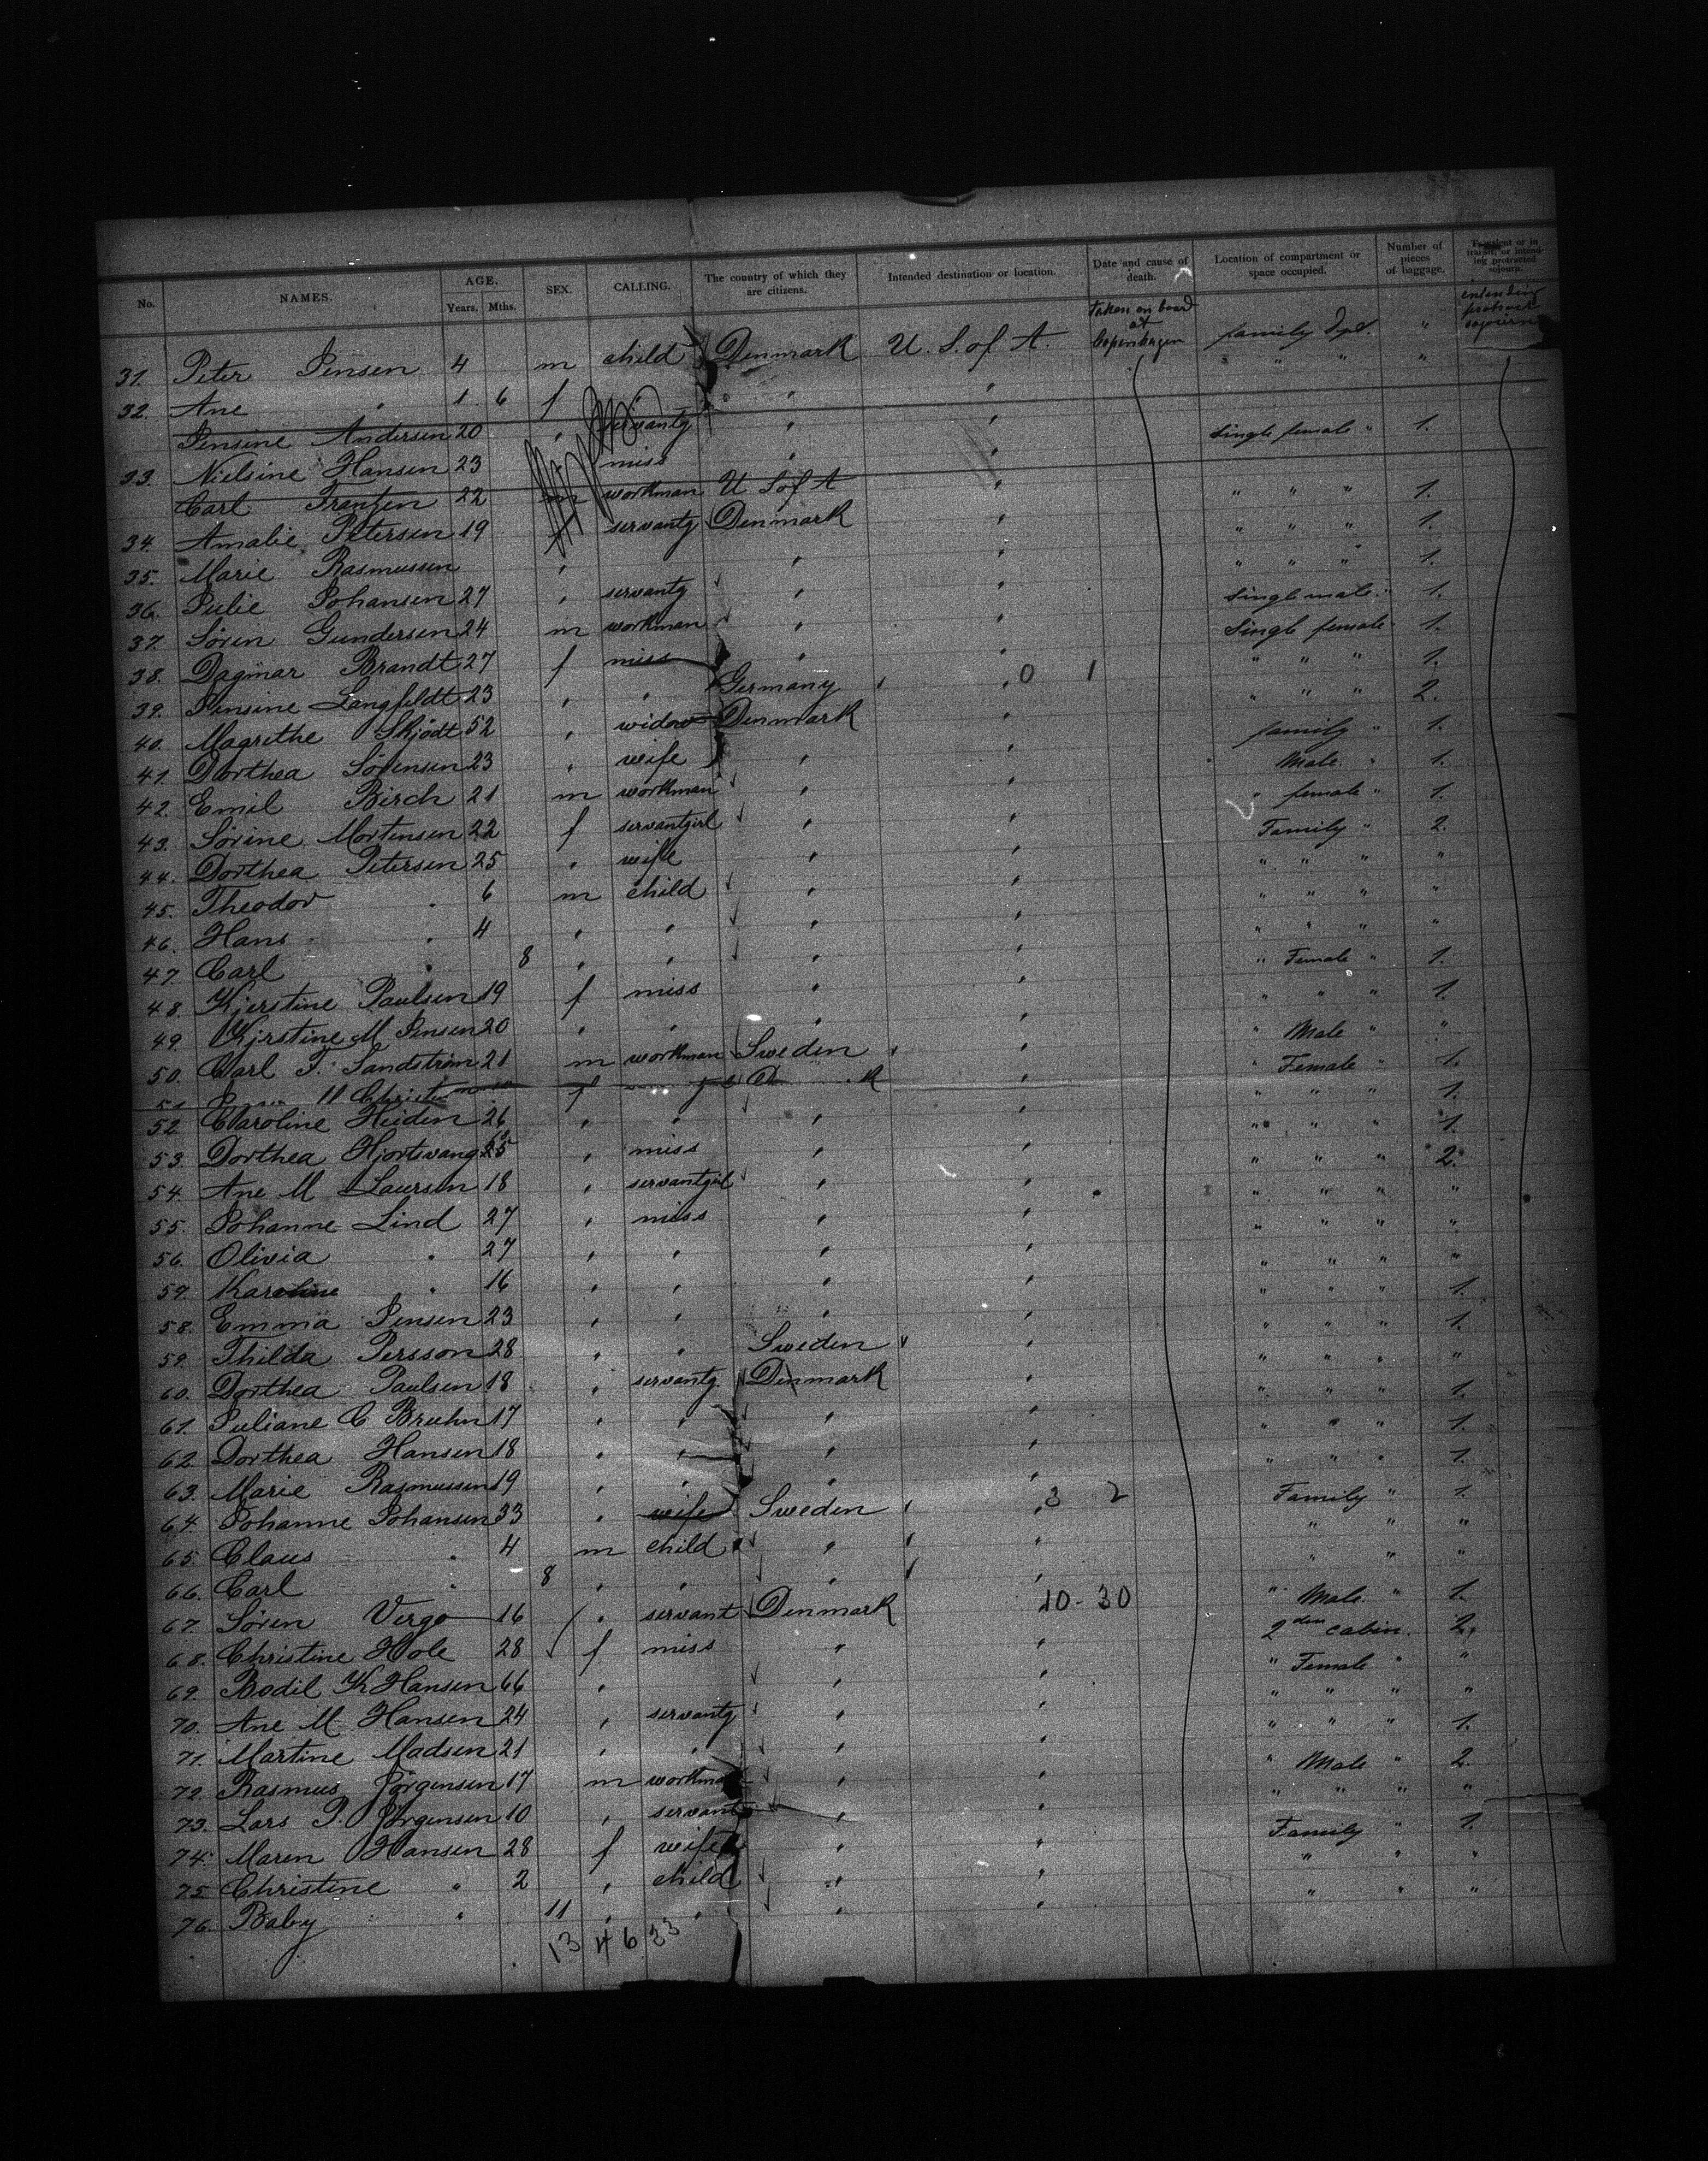 No. NAMES. AGE. Years. Mths. SEX. CALLING. The country of which they are citizens. Intended destination or location. Date and cause of death. Location of compartment or space occupied. Number of pieces of baggage. Transient or in transit, or intending protracted sojourn.
31. Peter Jensen 4 m child Denmark U. S. of A. taken on board at Copenhagen family Dpt. " intending protract sojourn
32. Ane " 1 6 f " " " " " "
Jensine Andersen 20 " servantg " "
33. Nielsine Hansen 23 miss " " Single female " 1.
Carl Frantzen 22 m workman U S of A "
34. Amalie Petersen 19 servantg Denmark " " " " 1.
35. Marie Rasmussen " " " " " 1.
36. Julie Johansen 27 " servantg " " " " " 1.
37. Sören Gundersen 24 m workman " " Single male " 1.
38. Dagmar Brandt 27 f miss " " Single female 1.
39. Jensine Langfeldt 23 " " Germany " 0 1 " " " 1.
40. Magrethe Skjödt 52 " widow Denmark " " " " 2.
41. Dorthea Sörensen 23 " wife " " family " 1.
42. Emil Birch 21 m workman " " Male " 1.
43. Sörine Mortensen 22 f servantgirl " " " female " 1.
44. Dorthea Petersen 25 " wife " " Family " 2.
45. Theodor " 6 m child " " " " " "
46. Hans " 4 " " " " " " " "
47. Carl " 8 " " " " " " " "
48. Kjerstine Paulsen 19 f miss " " " Female " 1.
49. Kjrstine M Jensen 20 " " " " " " " 1.
50. Carl F. Sandström 21 m workman Sweden " " Male " "
51. f " " Female " 1.
52. Caroline Heiden 26 " " " " " " " 1.
53. Dorthea Hjortsvang 25 " miss " " " " " 1.
54. Ane M Laursen 18 " servantgirl " " " " " 2.
55. Johanne Lind 27 " miss " " " " " "
56. Olivia " 27 " " " " " " " "
57. Karoline " 16 " " " " " " " "
58. Emma Jensen 23 " " " " " " " 1.
59. Thilda Persson 28 " " Sweden " " " " 1.
60. Dorthea Paulsen 18 " servantg. Denmark " " " " "
61. Juliane C Bruhn 17 " " " " " " " 1.
62. Dorthea Hansen 18 " " " " " " " 1.
63. Marie Rasmussen 19 " " " " " " " 1.
64. Johanne Johansen 33 " wife Sweden " 3 2 Family " 1.
65. Claus " 4 m child " " " " "
66. Carl " 8 " " " " " " "
67. Sören Virgo 16 " servant Denmark 10 - 30 " Male " 1.
68. Christine Hole 28 f miss " " 2den cabin. 2.
69. Bodil K Hansen 66 " " " " Female " "
70. Ane M Hansen 24 " servantg " " " " " "
71. Martine Madsen 21 " " " " " " " 1.
72. Rasmus Jörgensen 17 m workman " " " Male " 2.
73. Lars P. Jörgensen 10 " servant " " " " " "
74. Maren Hansen 28 f wife " " Family " 1.
75 Christine " 2 " child " " " " "
76. Baby " 11 " " " " " " "
13 4 6 33